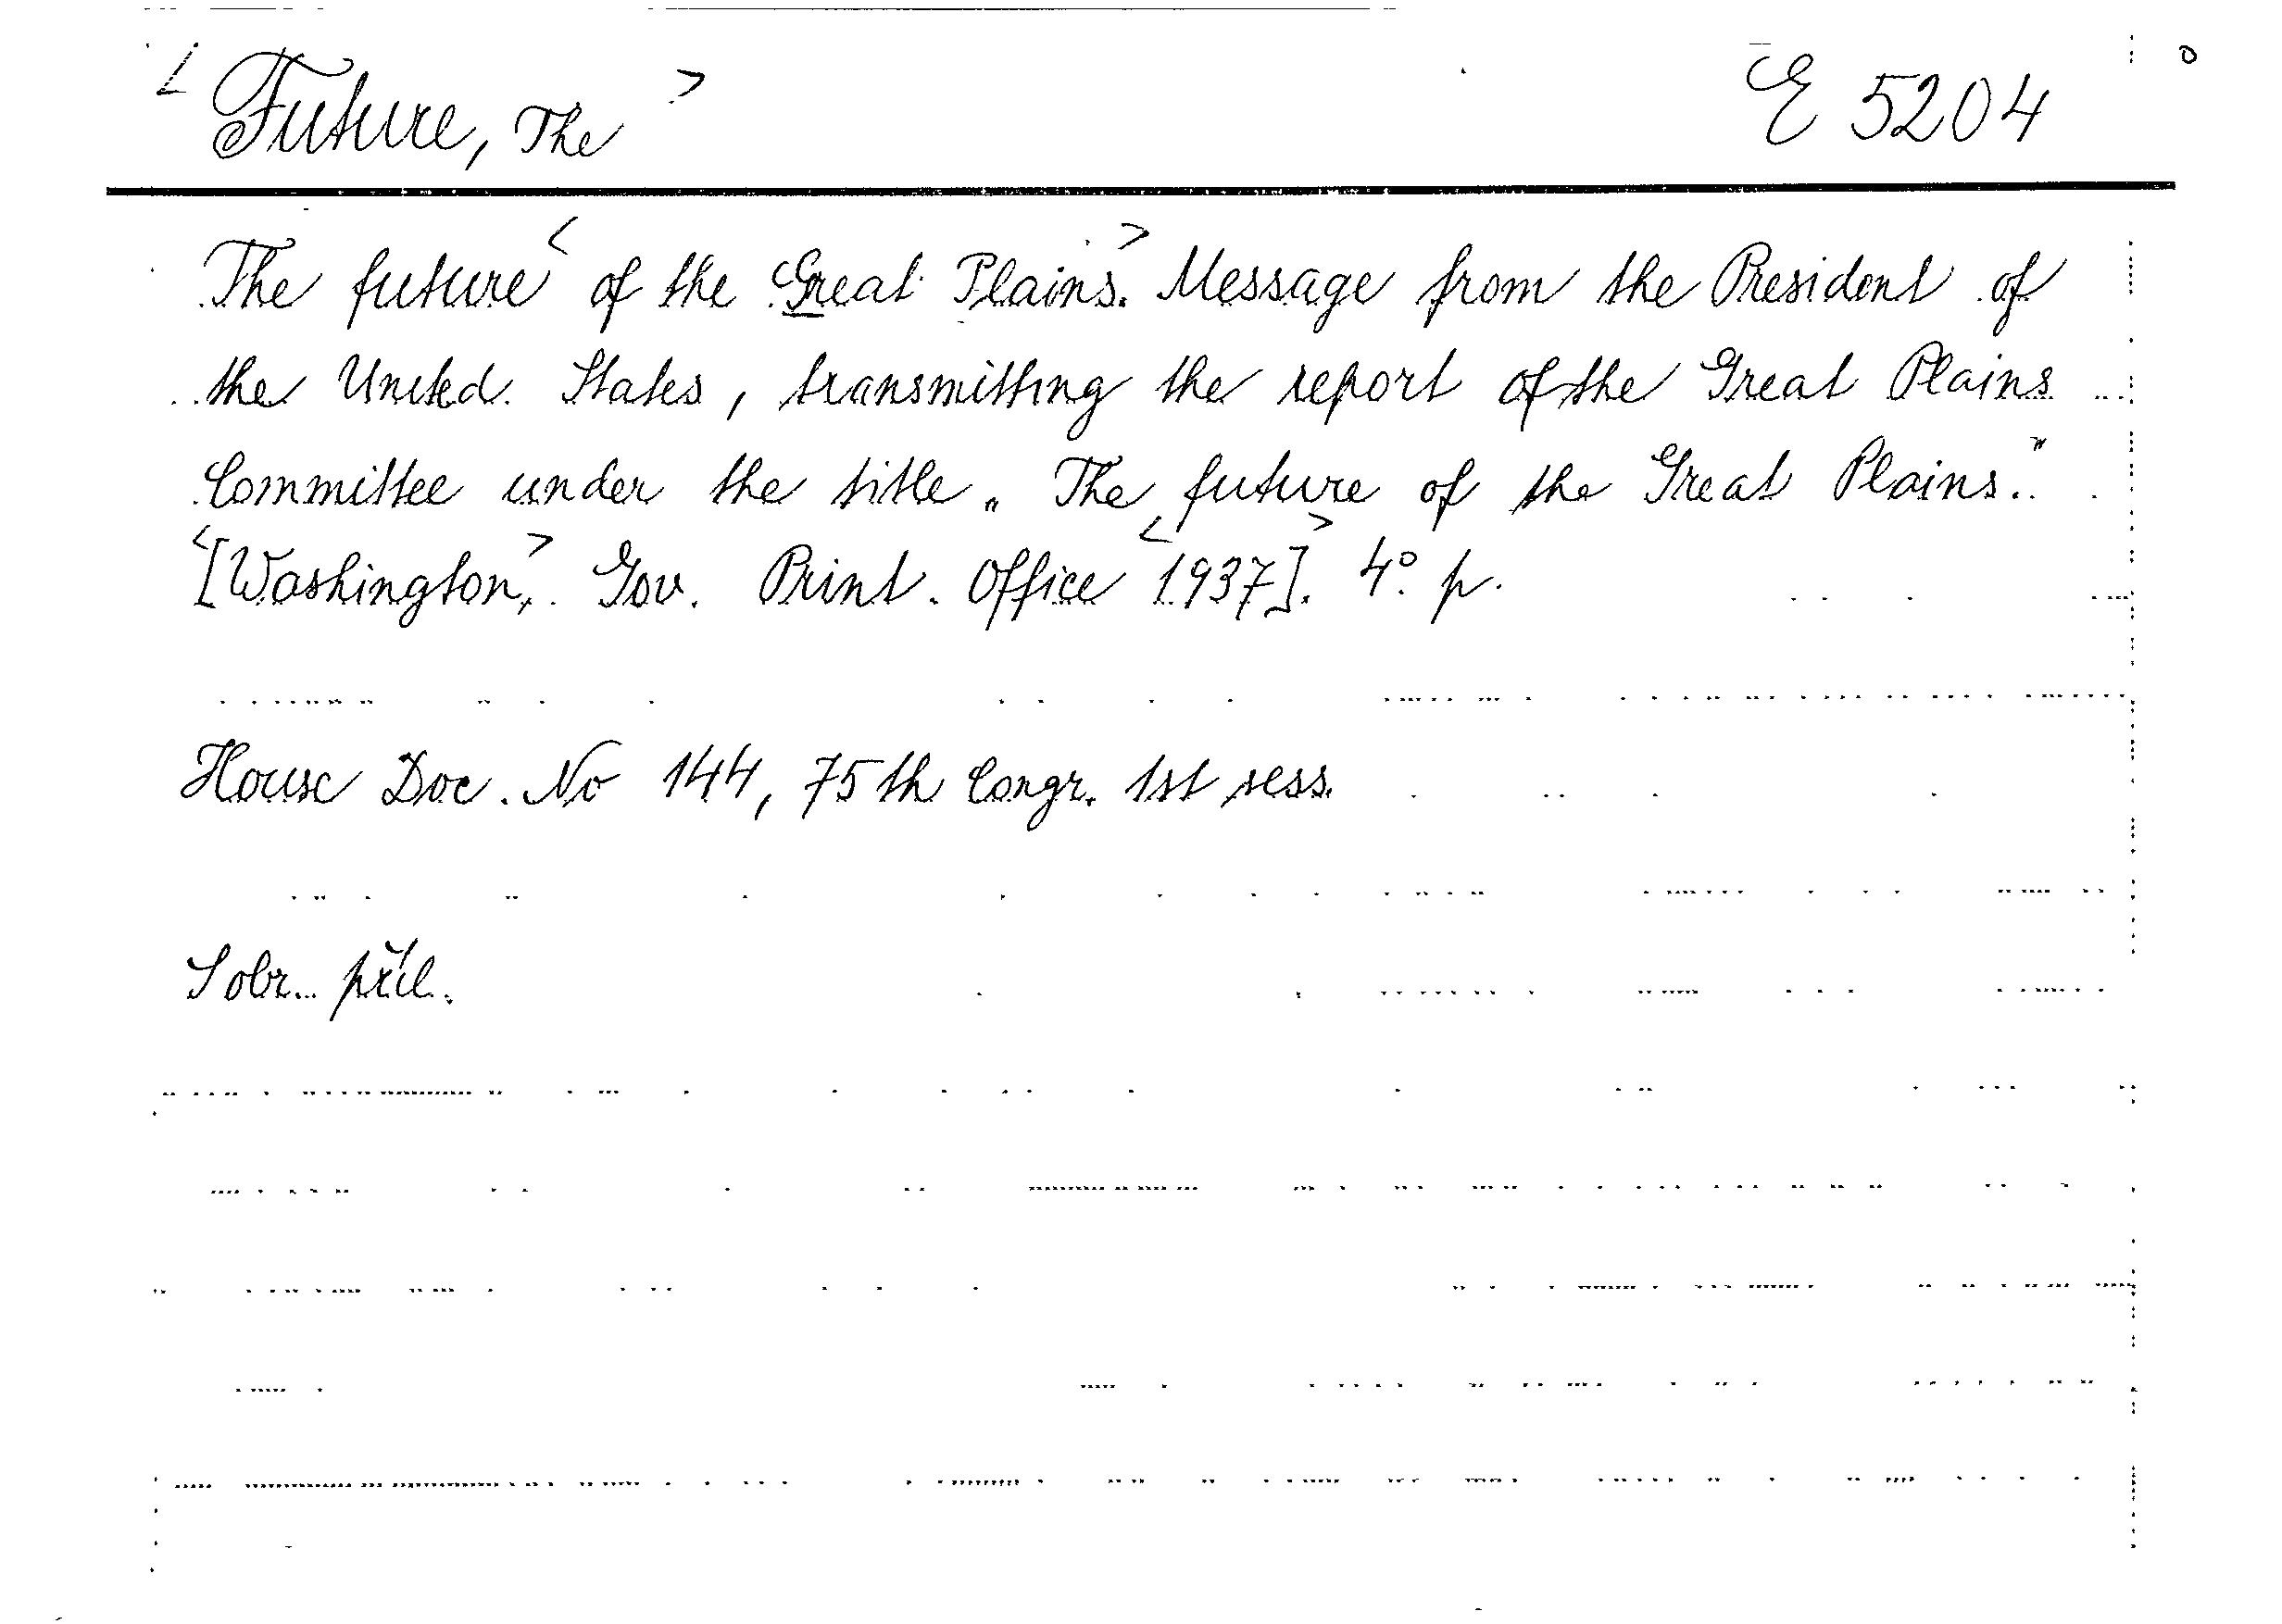 <Future, The> E 5204
The future <of the Great Plains.> Message from the President of
the United States, transmitting the report of the Great Plains
Committee under the title „The future of the Great Plains."
<[Washington,> Gov. Print. Office <1937]>. 4° p.
House Doc. No 144, 75th Congr. 1st sess.
S obr. příl.